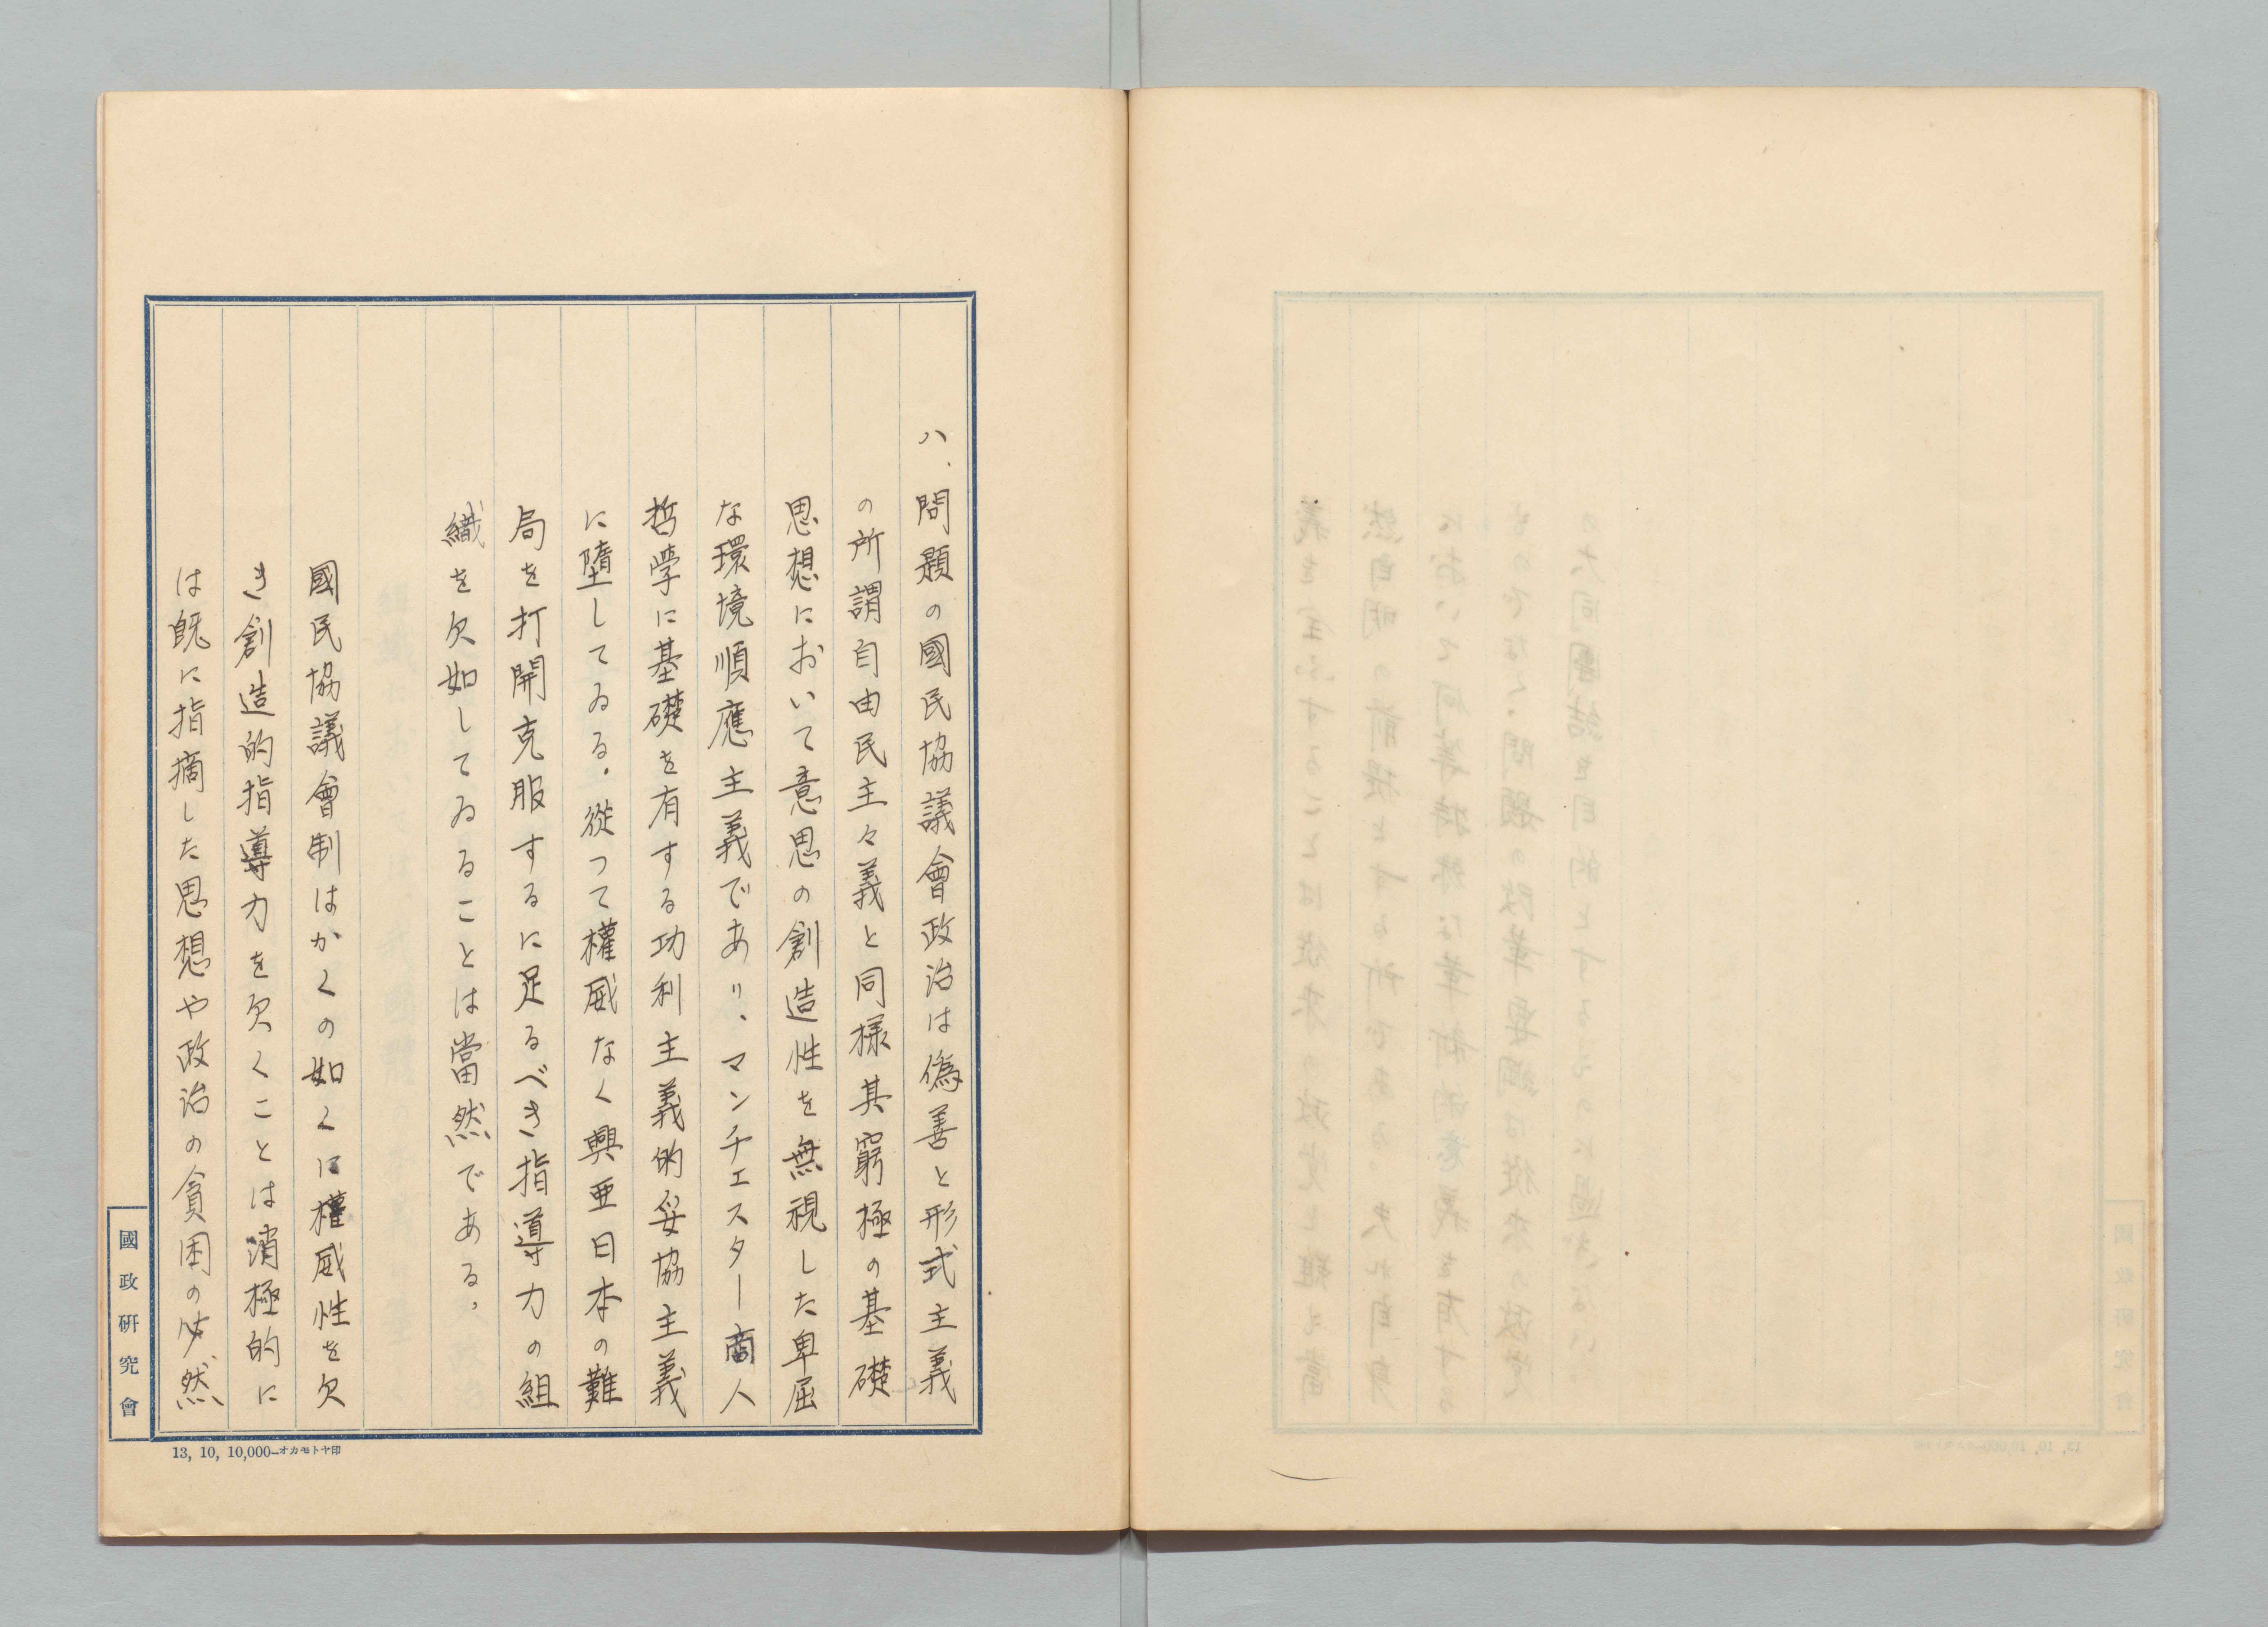 八、問題の國民協議會政治は偽善と形式主義
の所謂自由民主々義と同樣其窮極の基礎
思想において意思の創造性を無視した卑屈
な環境順應主義であり、マンチェスター商人
哲学に基礎を有する功利主義的妥協主義
に墮してゐる。從つて權威なく興亜日本の難
局を打開克服するに足るべき指導力の組
織を欠如してゐることは當然である。
國民協議會制はかくの如くに權威性を欠
き創造的指導力を欠くことは消極的に
は既に指摘した思想や政治の貧困の必然
國政研究會
13, 10, 10,000—オカモトヤ印